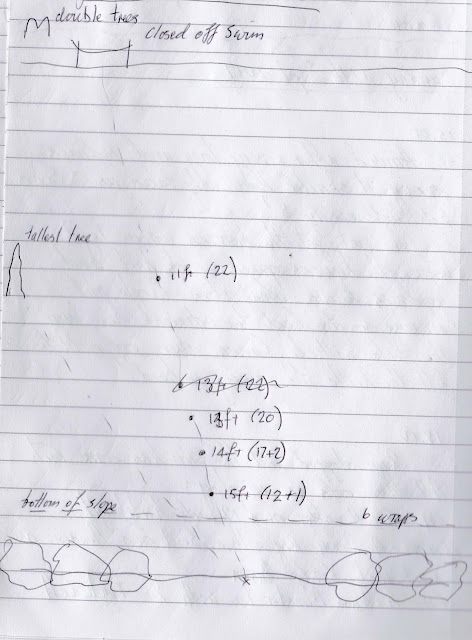 double trees
closed off swim
tallest tree
11ft (22)
13ft (22)
13ft (20)
14ft (17+2)
15ft (12+1)
bottom of slope
6 wraps